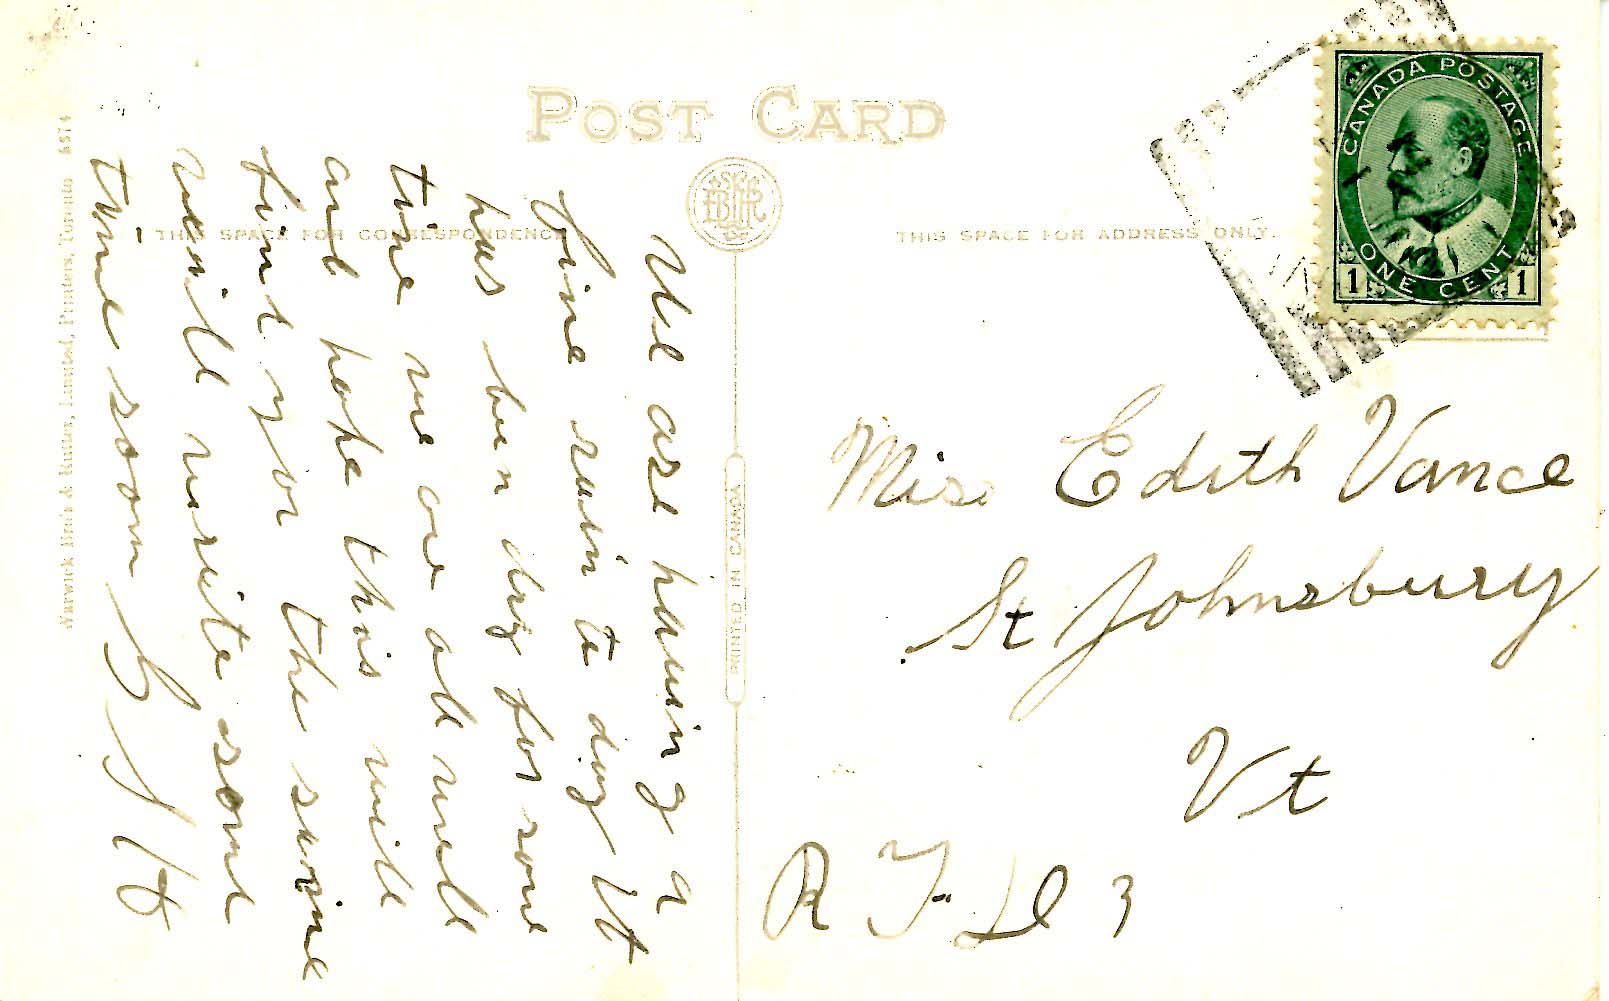 POST CARD
THIS SPACE FOR CORRESPONDENCE
THIS SPACE FOR ADDRESS ONLY.
CANADA POSTAGE
ONE CENT
1 1
PRINTED IN CANADA
Warwick Bro's & Rutter, Limited, Printers, Toronto
We are having a
fine rain to day It
has ben dry for some
time we are all well
and hope this will
find you the same
will write some
time soon
Miss Edith Vance
St Johnsbury
Vt
R F D 3